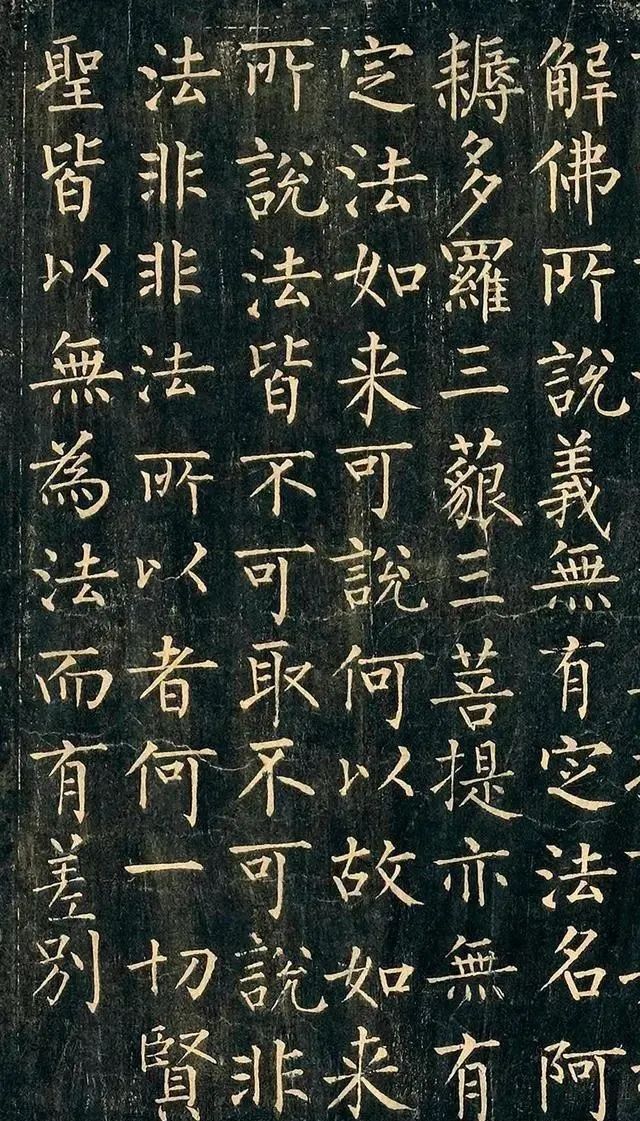 解佛所說義無有定法名阿
耨多羅三藐三菩提亦無有
定法如来可說何以故如来
所說法皆不可取不可說非
法非非法所以者何一切賢
聖皆以無為法而有差別